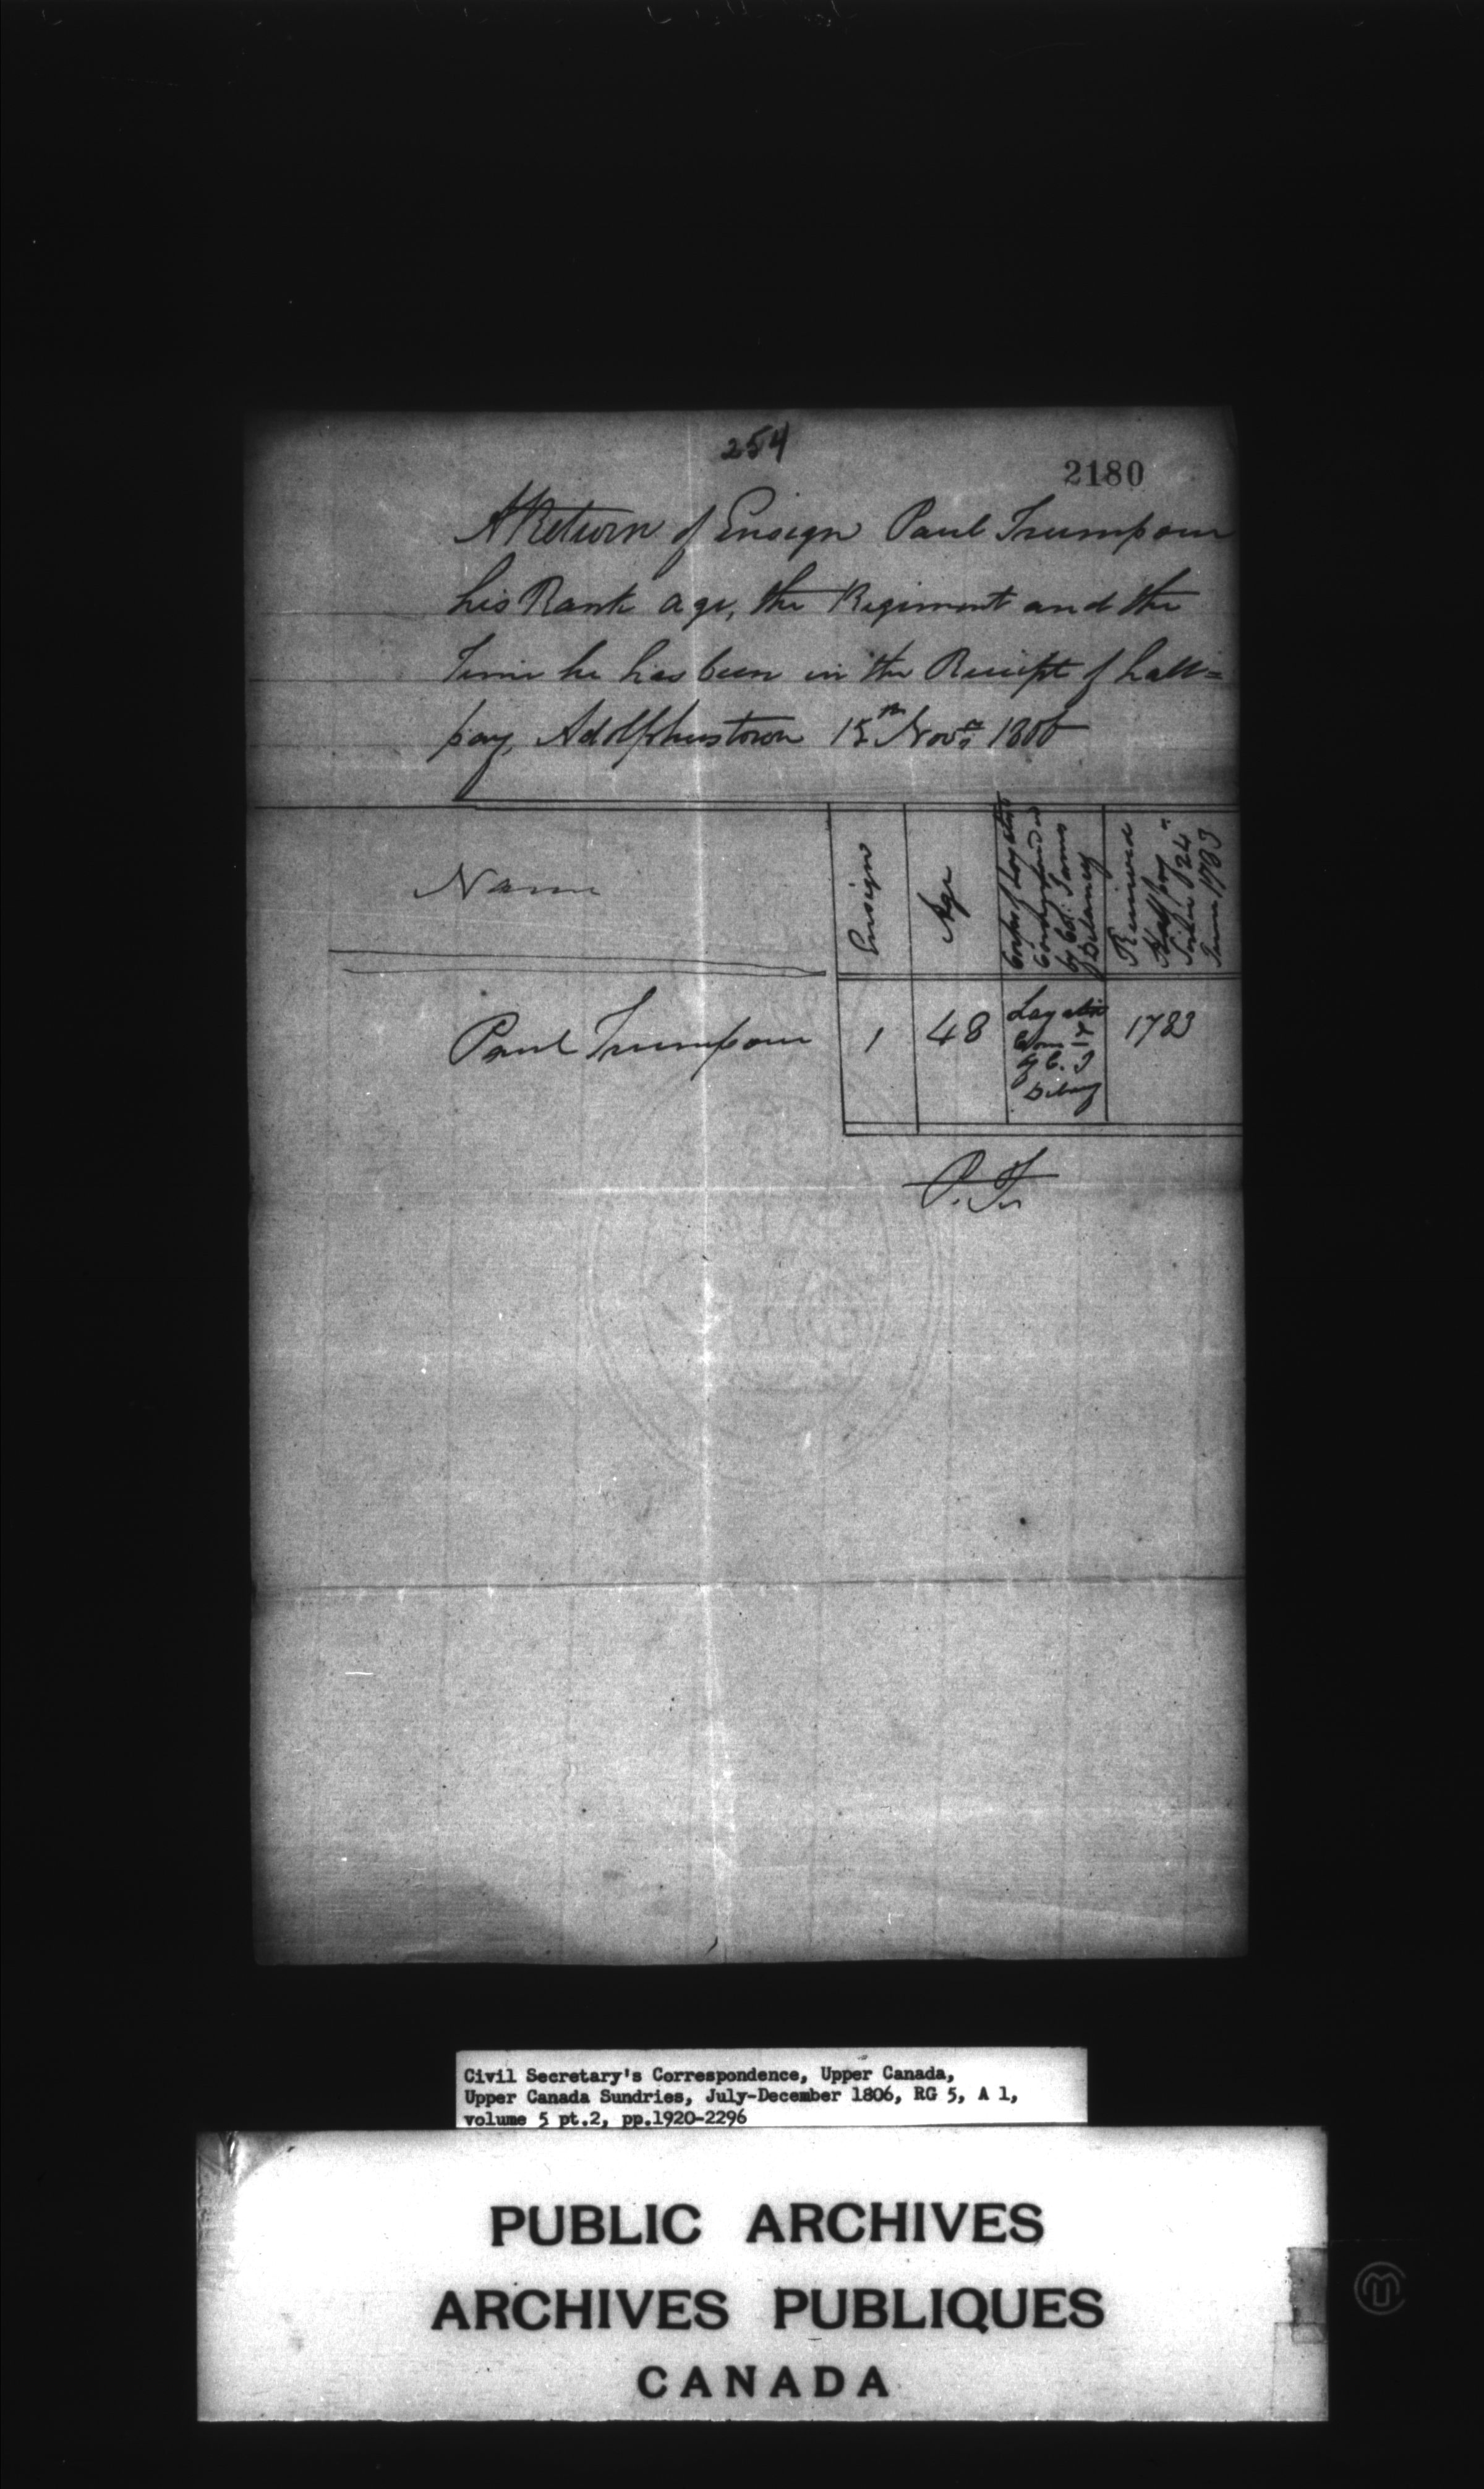 254
2180
A Return of Ensign Paul Trumpour
his Rank age, the Regiment and the
Time he has been in the Receipt of half=
pay, Adolphustown 15th Novr 1806
Name
Ensign
Age
Corps of Loyalists
Commanded
by Col: James
Delancey
Received
Half pay
Since 24th
June 1783
Paul Trumpour
1
48
Loyalist
Comd
by C. J
Delancy
1783
P. Tr
Civil Secretary's Correspondence, Upper Canada,
Upper Canada Sundries, July-December 1806, RG 5, A 1,
volume 5 pt.2, pp.1920-2296
PUBLIC ARCHIVES
ARCHIVES PUBLIQUES
CANADA